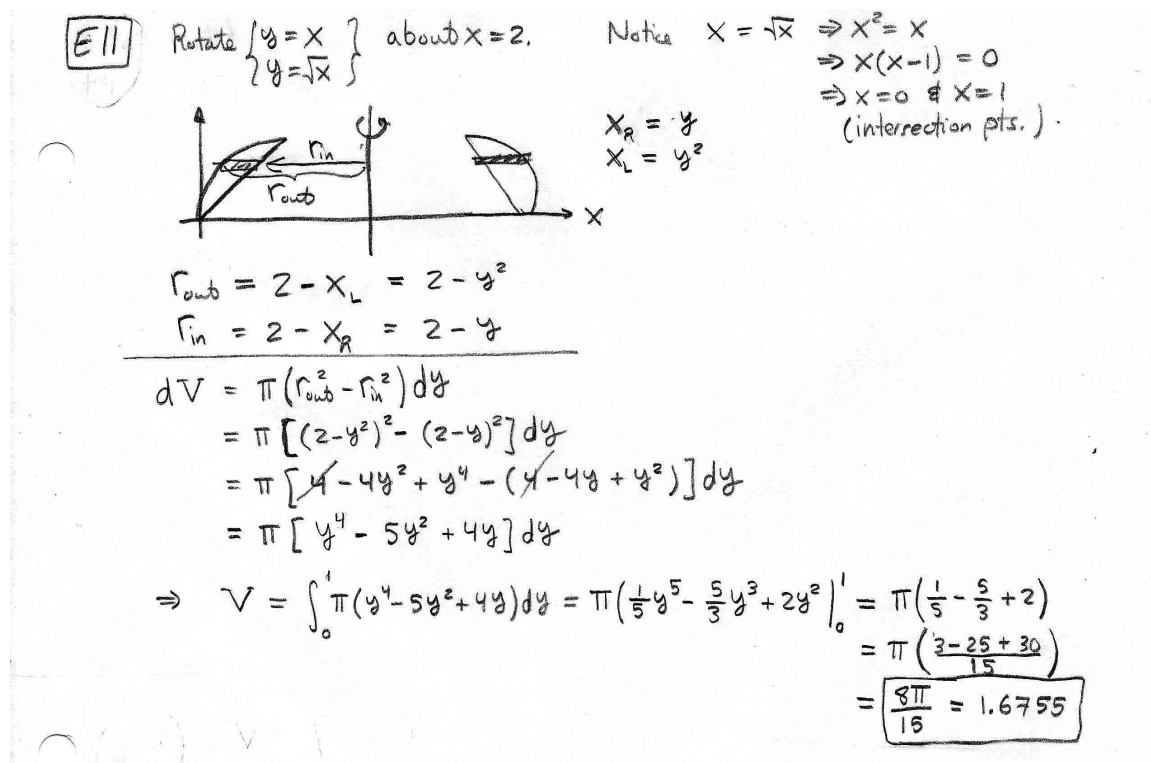 E11 Rotate { y = x } about x = 2. Notice x = √x ⇒ x² = x
{ y = √x } ⇒ x(x-1) = 0
⇒ x = 0 & x = 1
(intersection pts.).
x_R = y
x_L = y²
r_in
r_out
x
r_out = 2 - x_L = 2 - y²
r_in = 2 - x_R = 2 - y
dV = π(r_out² - r_in²)dy
= π[(2-y²)² - (2-y)²]dy
= π[4 - 4y² + y⁴ - (4 - 4y + y²)]dy
= π[y⁴ - 5y² + 4y]dy
⇒ V = ∫₀¹ π(y⁴ - 5y² + 4y)dy = π(1/5 y⁵ - 5/3 y³ + 2y² |₀¹ = π(1/5 - 5/3 + 2)
= π((3 - 25 + 30)/15)
= 8π/15 = 1.6755